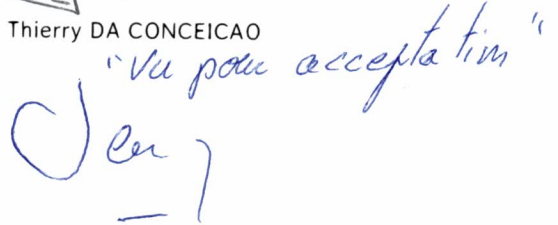 Thierry DA CONCEICAO
"Vu pour acceptation"